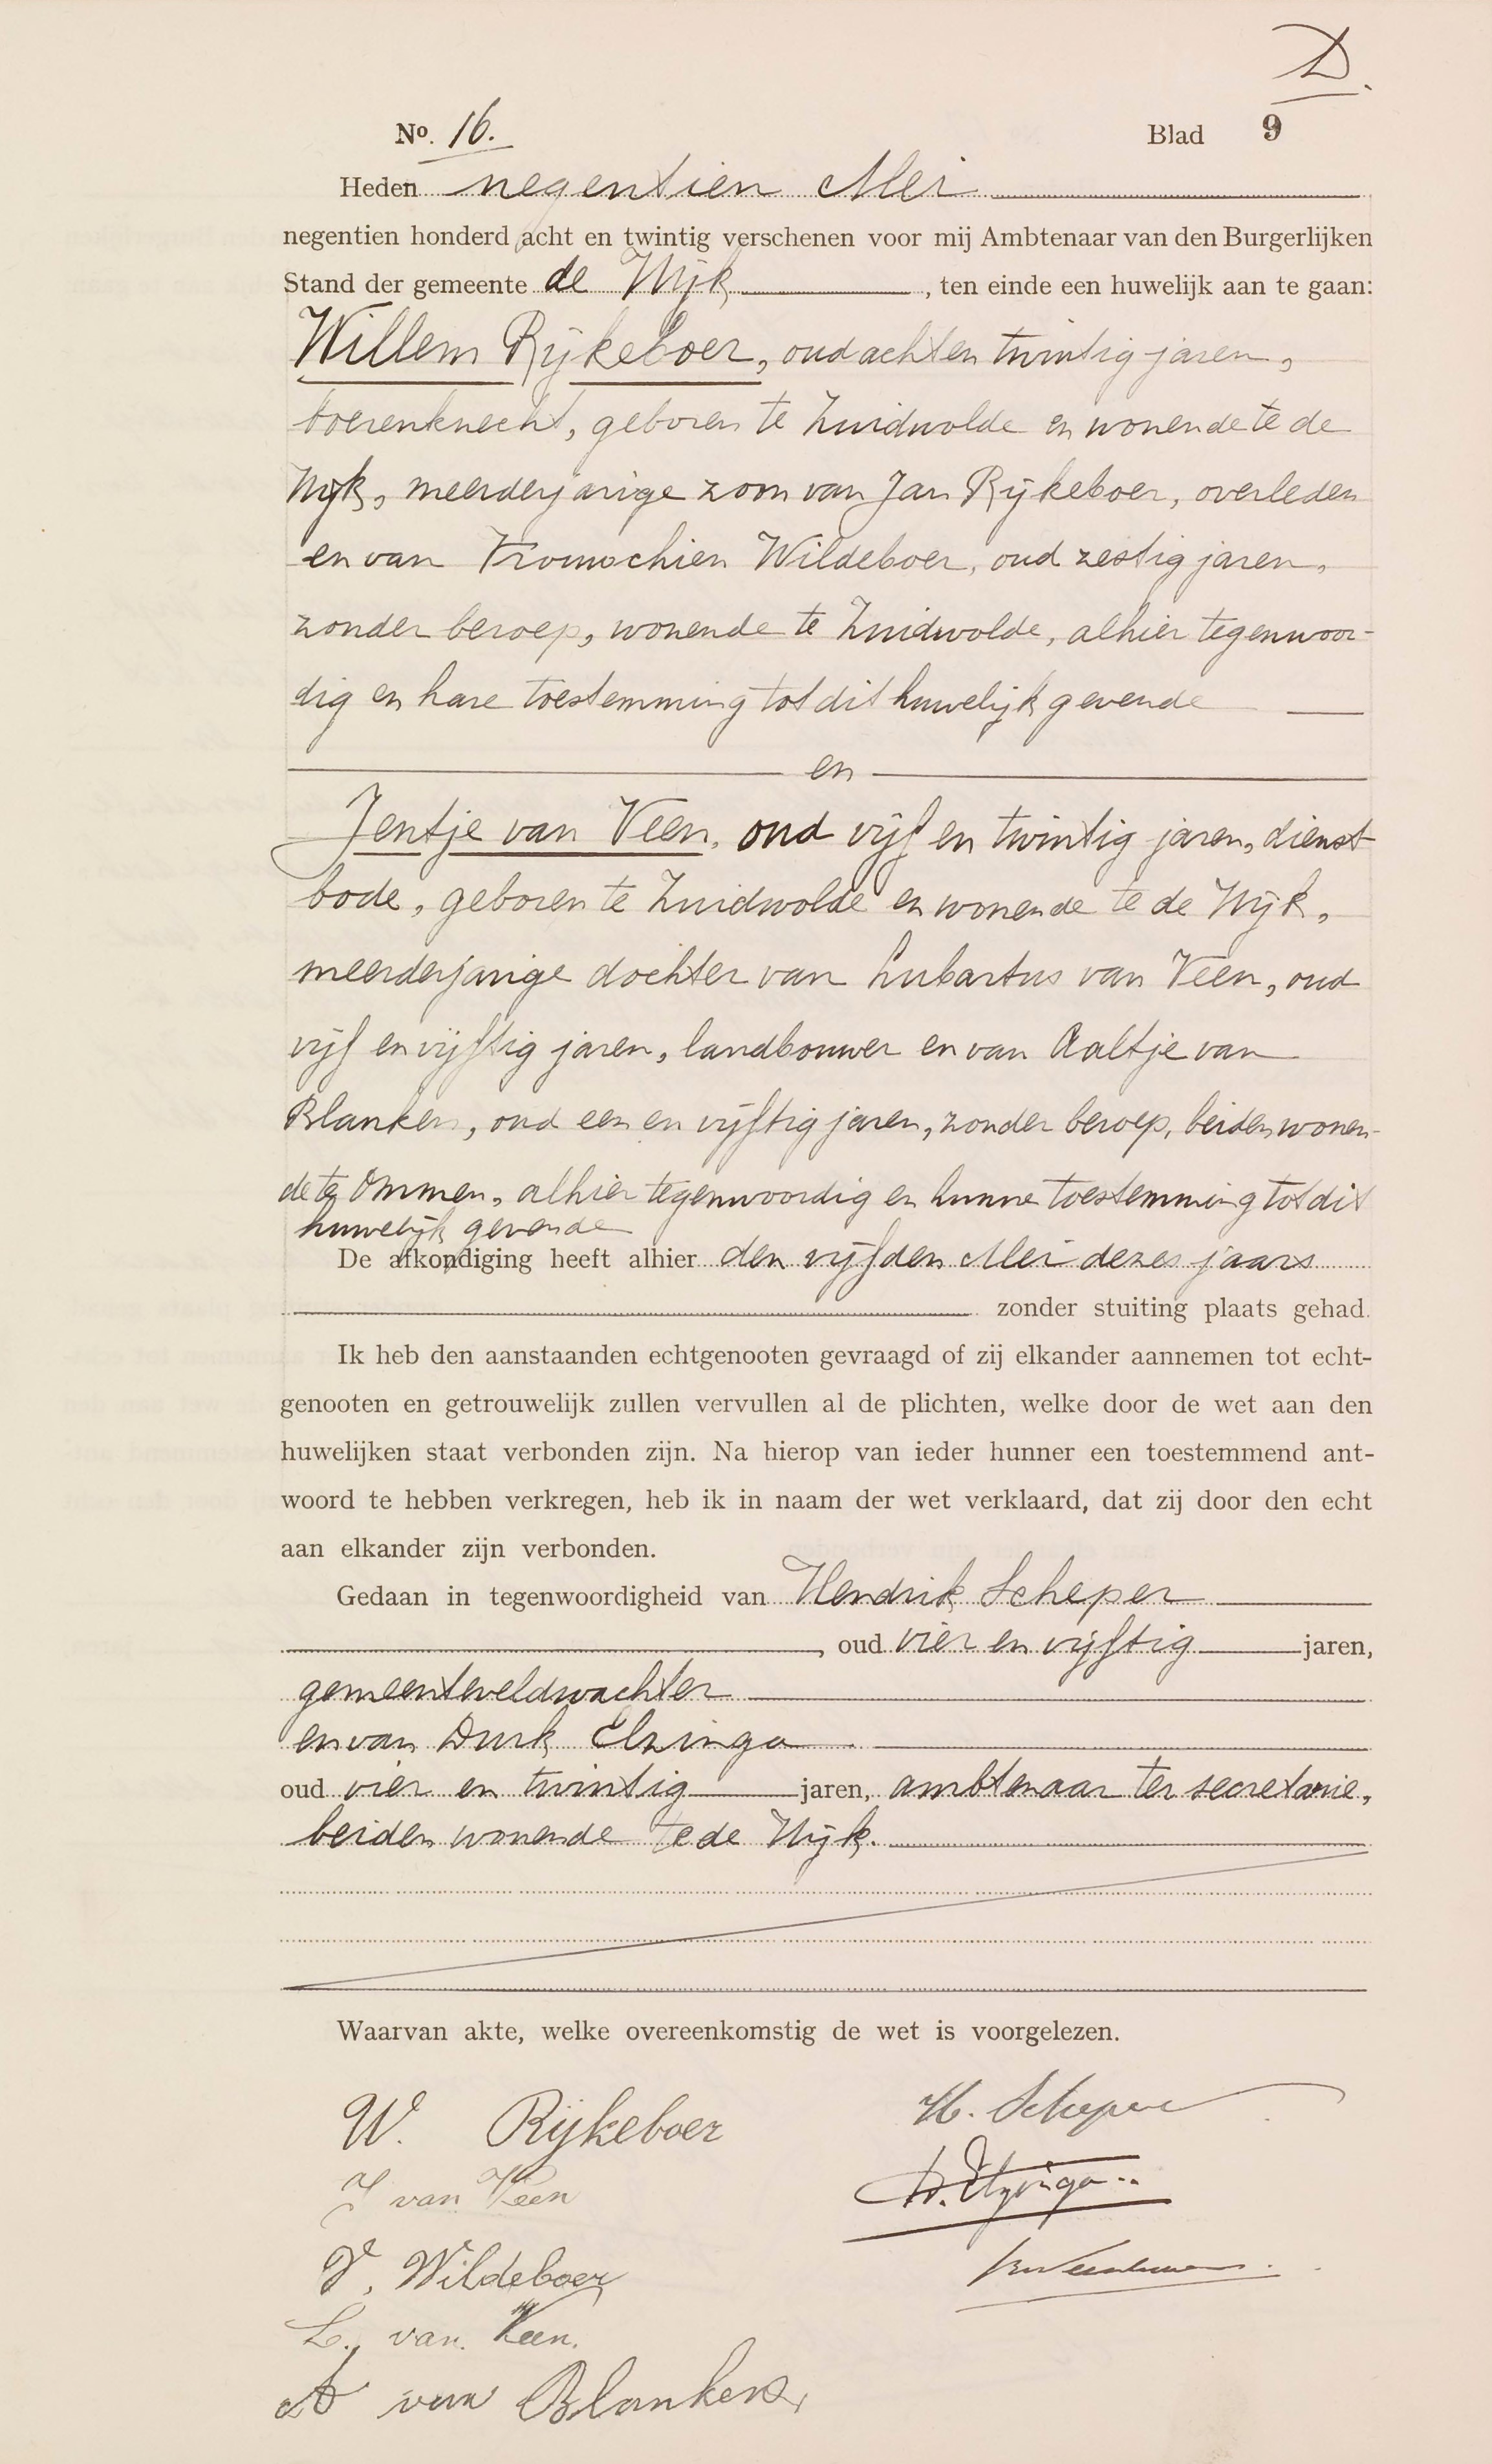 D.
No. 16. Blad 9
Heden negentien Mei
negentien honderd acht en twintig verschenen voor mij Ambtenaar van den Burgerlijken
Stand der gemeente de Wijk, ten einde een huwelijk aan te gaan:
Willem Rijkeboer, oud acht en twintig jaren,
boerenknecht, geboren te Zuidwolde en wonende te de
Wijk, meerderjarige zoon van Jan Rijkeboer, overleden
en van Vrouwchien Wildeboer, oud zestig jaren,
zonder beroep, wonende te Zuidwolde, alhier tegenwoor-
dig en hare toestemming tot dit huwelijk gevende
en
Jentje van Veen, oud vijf en twintig jaren, dienst
bode, geboren te Zuidwolde en wonende te de Wijk,
meerderjarige dochter van Lubartus van Veen, oud
vijf en vijftig jaren, landbouwer en van Aaltje van
Blanken, oud een en vijftig jaren, zonder beroep, beiden wonen-
de te Ommen, alhier tegenwoordig en hunne toestemming tot dit
huwelijk gevende
De afkondiging heeft alhier den vijfden Mei dezes jaars
zonder stuiting plaats gehad.
Ik heb den aanstaanden echtgenooten gevraagd of zij elkander aannemen tot echt-
genooten en getrouwelijk zullen vervullen al de plichten, welke door de wet aan den
huwelijken staat verbonden zijn. Na hierop van ieder hunner een toestemmend ant-
woord te hebben verkregen, heb ik in naam der wet verklaard, dat zij door den echt
aan elkander zijn verbonden.
Gedaan in tegenwoordigheid van Hendrik Scheper
, oud vier en vijftig jaren,
gemeenteveldwachter
en van Durk Elzinga
oud vier en twintig jaren, ambtenaar ter secretarie,
beiden wonende te de Wijk.
Waarvan akte, welke overeenkomstig de wet is voorgelezen.
W. Rijkeboer H. Scheper
J van Veen D. Elzinga
V. Wildeboer
L. van Veen.
A van Blanken